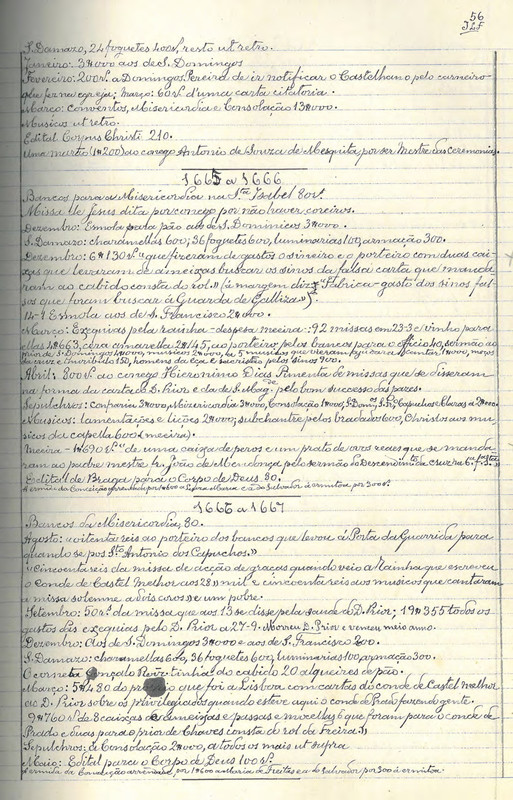 56
S. Damazo, 24 foguetes 400rs, resto ut retro.
Janeiro: 3#000 aos de S. Domingos
Fevereiro: 200rs. a Domingos Pereira de ir notificar o Castelhano pelo carneiro
que fez na egreja; março: 60rs d'uma carta citatoria.
Março: conventos, Misericordia e Consolação 13#000.
Musicos ut retro.
Edital Corpus Christi 210.
Uma marta (1#200) ao conego Antonio de Souza de Mesquita por ser Mestre das Ceremonias.
1665 a 1666
Bancos para a Misericordia na Sta Isabel 80rs.
Missa de Jesus dita por conego por não haver coreiros.
Dezembro: Esmola pada pão aos de S. Domingos 3#000.
S. Damazo: charamellas 600; 36 foguetes 600, luminarias 100, armação 300.
Dezembro: 6#130rs "que fizeram de gastos o sineiro e o porteiro com duas cai-
xas que levaram de ameixas buscar os sinos da falsa carta que manda-
ram ao cabido consta do rol." (á margem diz: "Fabrica-gasto dos sinos fal-
sos que foram buscar á Guarda de Galliza").
14-1 Esmola aos de S. Francisco 2#000
Março: Exequias pela rainha - despesa meeira: 92 missas em 23-3 e vinho para
ellas 4#663, cera amarella 2#145, ao porteiro pelos bancos para o officio 40, sermão ao
prior de S. Domingos 1#000, musicos 2#000, a 5 musicos que vieram fóra cantar 1#000, moços
da cruz e thuribulo 150, homens da eça e sacristão, pelos sinos 900.
Abril: 800rs ao conego Hieronimo Dias Pimenta de missas que se disseram
na forma da carta do D. Prior e da de S. Mag.de pelo bom successo das pazes.
Sepulchros: Confraria 3#000, Mizericordia 3#000, Consolação 1#000, S. Domos, S. Fco, Capuchos e Claras a 2#000.
Musicos: lamentações e lições 2#000; subchantre pelos brados 600, Christos aos mu-
sicos da capella 600 (meeira).
Meeira - 1#690rs "de uma caixa de peros e um prato de ovos reaes que se manda-
ram ao padre mestre fr. João de Mendonça pelo sermão do descendimto da cruz na 6.ª fra Sta"
Edital de Braga para o Corpo de Deus 80.
A ermida da Conceição arrendada por 1#600 a Maria e a do Salvador á ermitoa por 300rs.
1666 a 1667
Bancos da Misericordia, 80.
Agosto: "oitenta reis ao porteiro dos bancos que levou á Porta da Guarrida para
quando se pos Sto Antonio dos Capuchos."
"Cincoenta reis da missa de acção de graças quando veio a Rainha que escreveu
o Conde de Castel Melhor aos 28" "mil e cincoenta reis aos musicos que cantaram
a missa solemne a dois coros" e um pobre.
Setembro: 50rs. da missa que aos 13 se disse pela saude do D. Prior; 19#355 todos os
gastos das exequias pelo D. Prior a 27-9. Morreu D. Prior e venceu meio anno.
Dezembro: Aos de S. Domingos 3#000 e aos de S. Francisco 200.
S. Damazo: charamellas 600, 36 foguetes 600, luminarias 100, armação 300.
O corneta Gonçalo Roiz tinha do cabido 20 alqueires de pão.
Março: 5#480 do que foi a Lisboa com cartas do conde de Castel melhor
ao D. Prior sobre os privilegiados quando esteve aqui o conde de Prado fazendo gente.
9#760rs de 8 caixas de ameixas e passas e mocellas 6 que foram para o conde de
Prado e duas para o prior de Chaves consta do rol da Freira."
Sepulchros: de Consolação 2#000, a todos os mais ut supra
Maio: Edital para o Corpo de Deus 100rs.
A ermida da Conceição arrendada, por 1#600 a Maria de Freitas e a do Salvador por 300 á ermitoa.